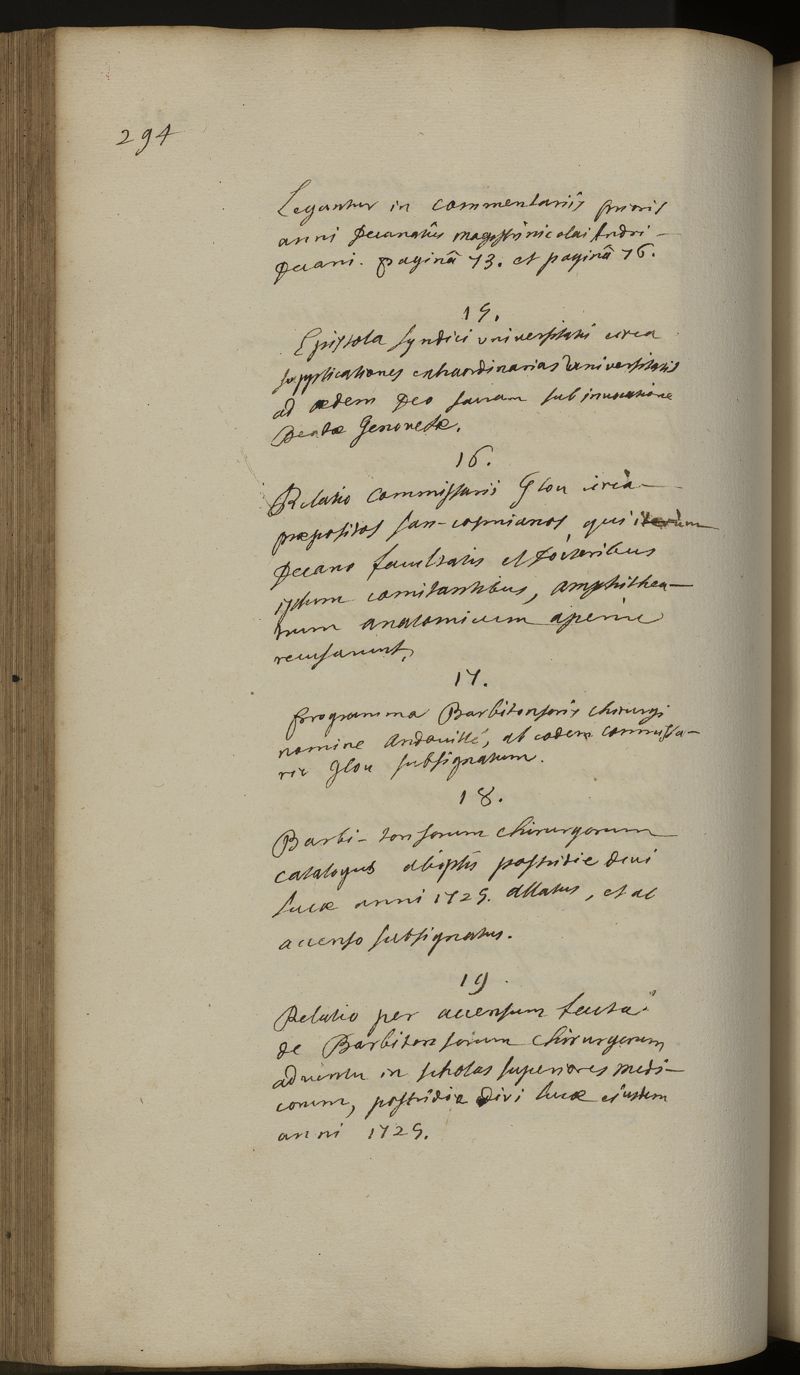 294
Legantur in commentariis prioris
anni Decanatûs magistri nicolai Andri-
Decani. paginâ 73. et paginâ 76.
15.
Epistola syndici universitatis circa
supplicationes extraordinarias Universitatis
ad ædem Deo sacram sub invocatione
Beatæ Genovefæ.
16.
Relatio commissarii Glou circa
præpositos san-cosmianos qui iterum
Decano facultatis et Doctoribus
ipsum comitantibus, amphithea-
trum anatomicum aperire
recusarunt.
17.
Programma Barbitonsoris chirurgi
nomine Andouillé, ab eodem commissa-
rio Glou subsignatum.
18.
Barbi-tonsorum chirurgorum
catalogus postridie divi
lucæ anni 1725. allatus, et ab
accenso subsignatus.
19.
Relatio per accensum facta
de Barbitonsorum chirurgorum
adventu in scholas superiores medi-
corum, postridie divi lucæ ejusdem
anni 1725.